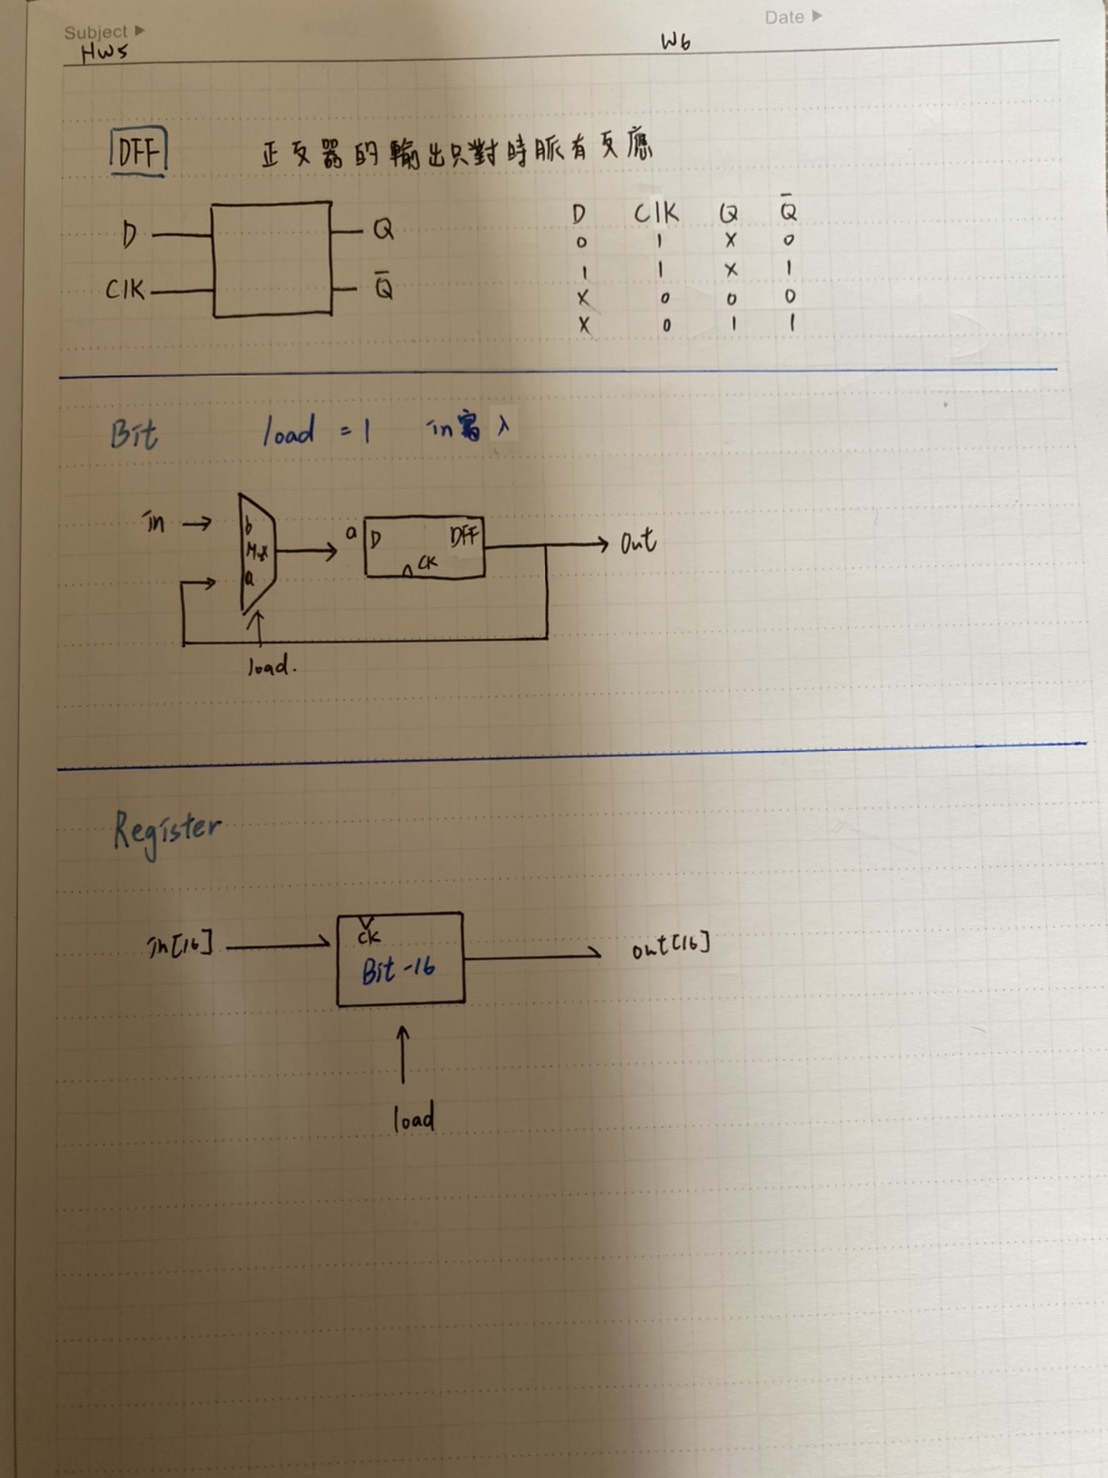 Subject ▶ Date ▶
HW5 W6
DFF 正反器的輸出只對時脈有反應
D Q
ClK Q̅
D ClK Q Q̅
0 1 X 0
1 1 X 1
X 0 0 0
X 0 1 1
Bit load = 1 in寫入
in → b Mux a a D DFF CK Out
load.
Register
in[16] CK out[16]
Bit-16
load